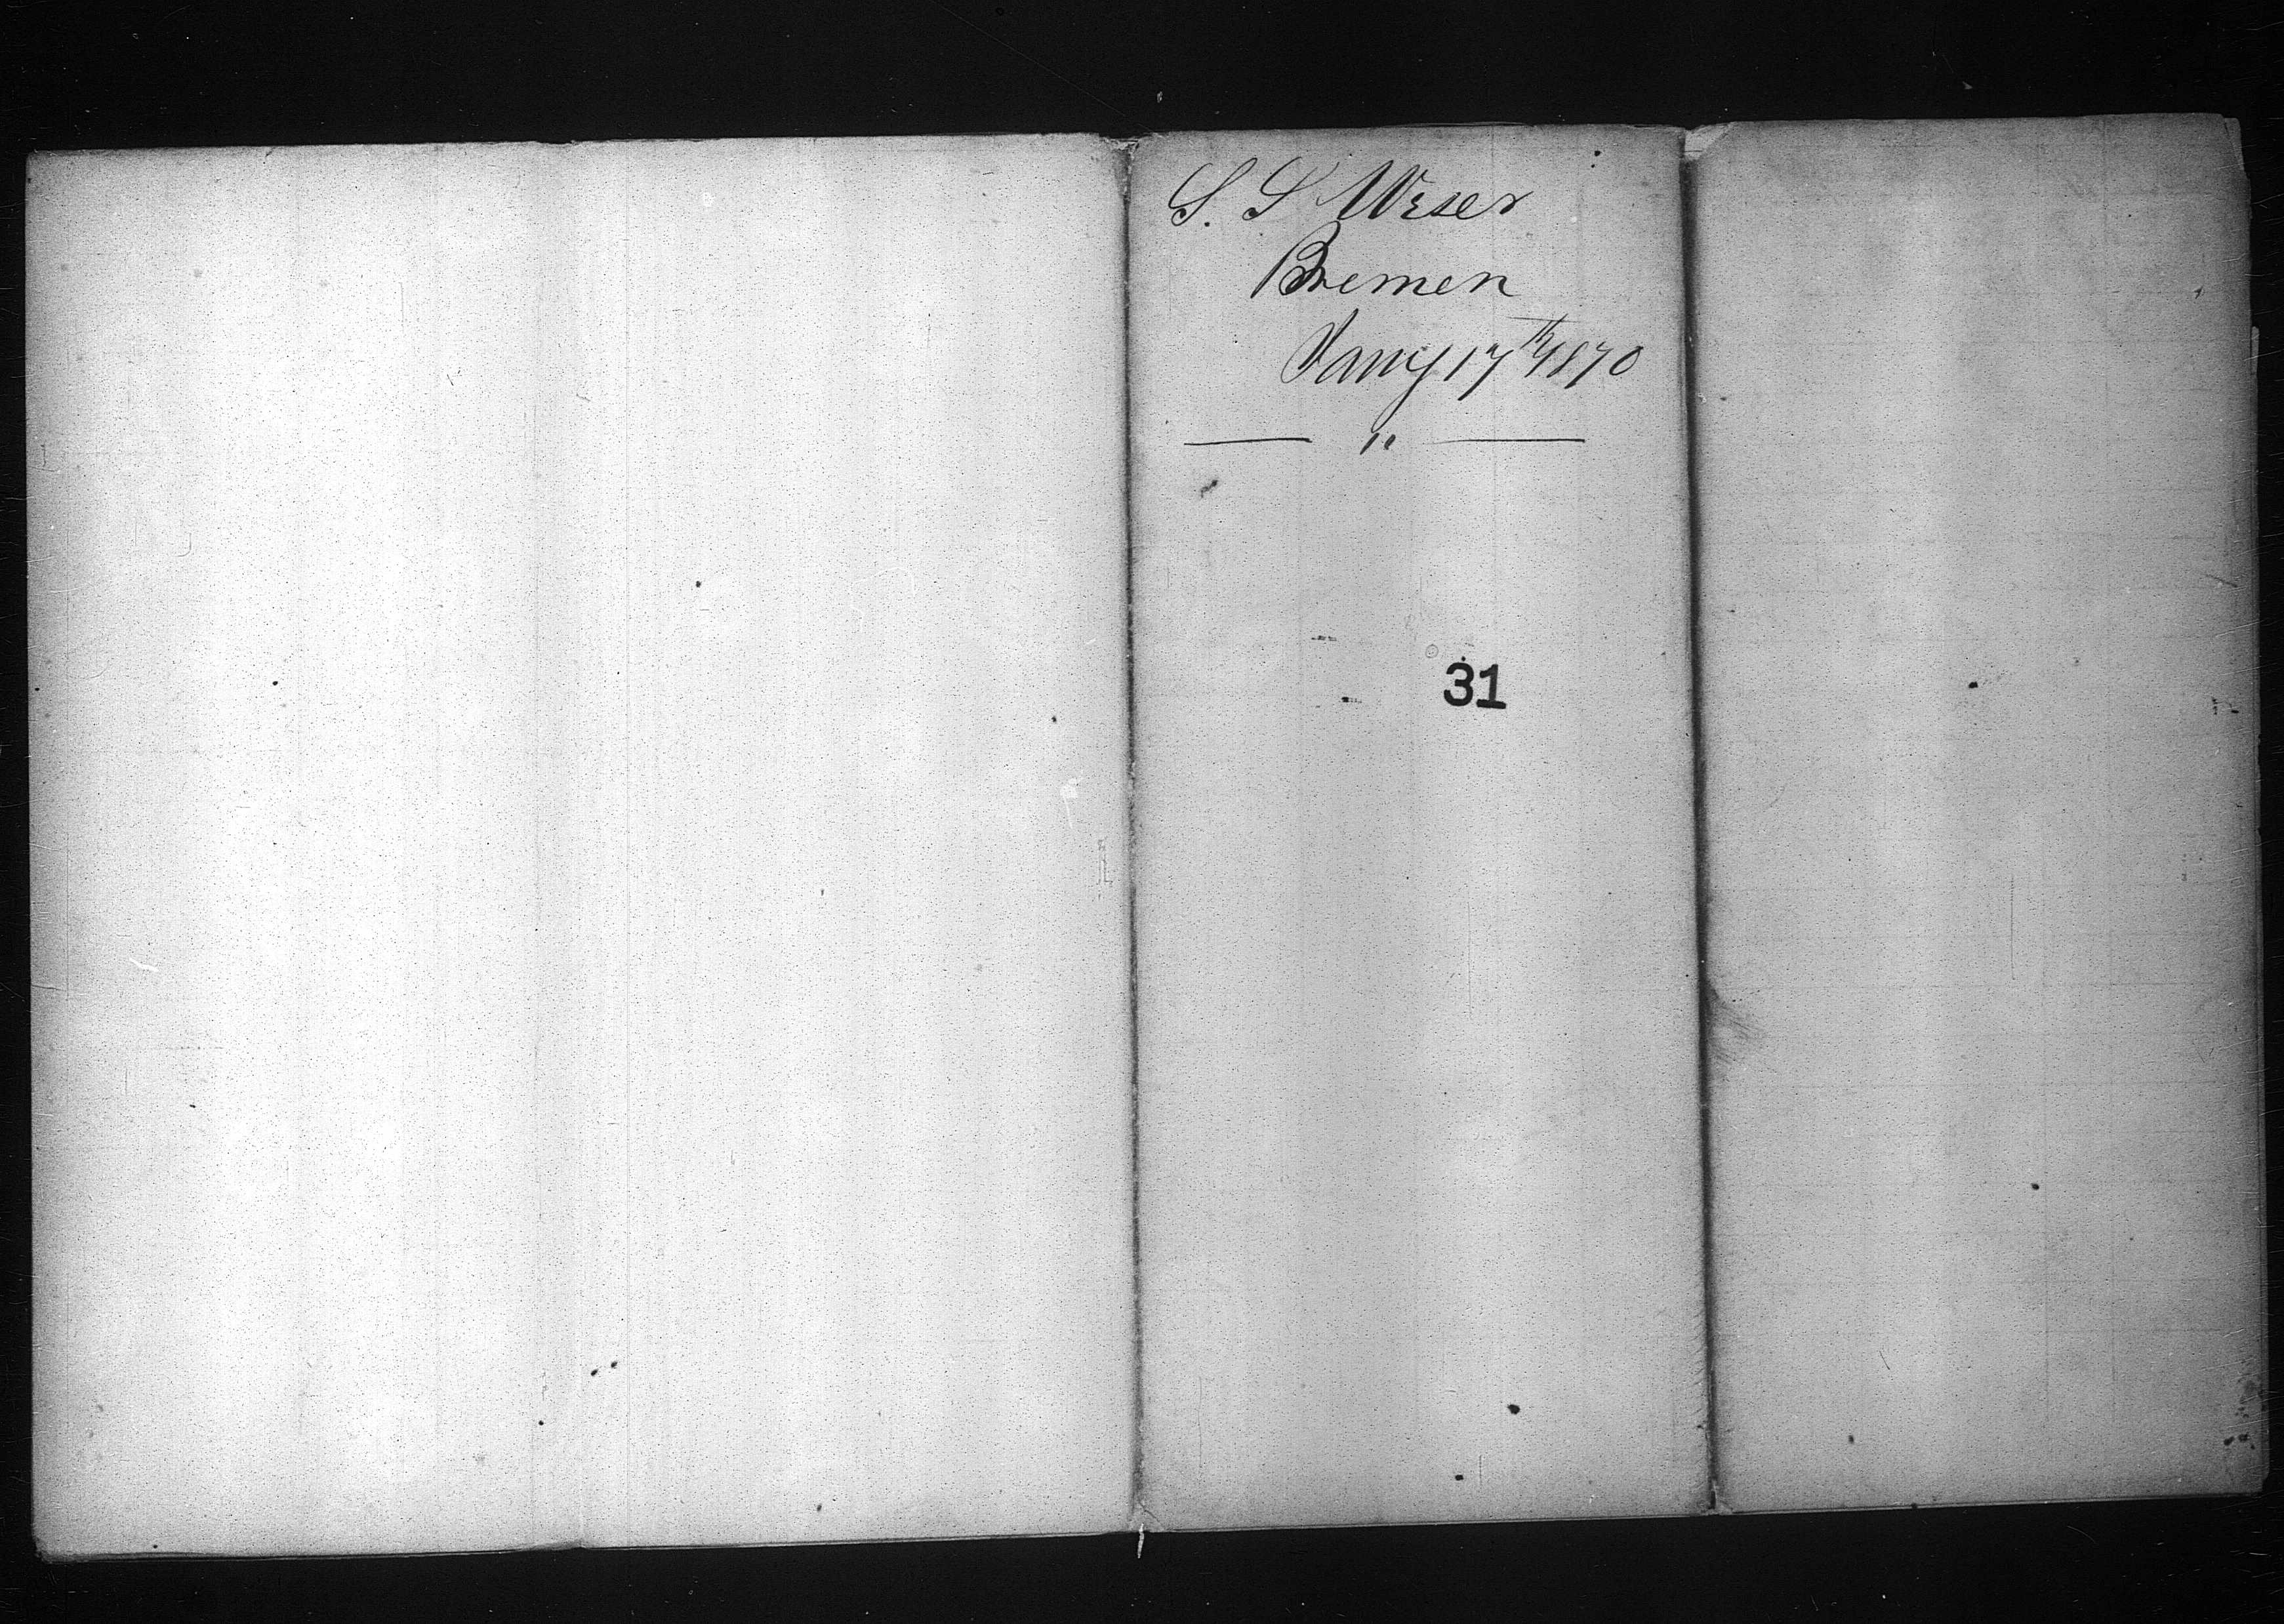 S. S Weser
Bremen
Jany 17th 1870
— " —
31